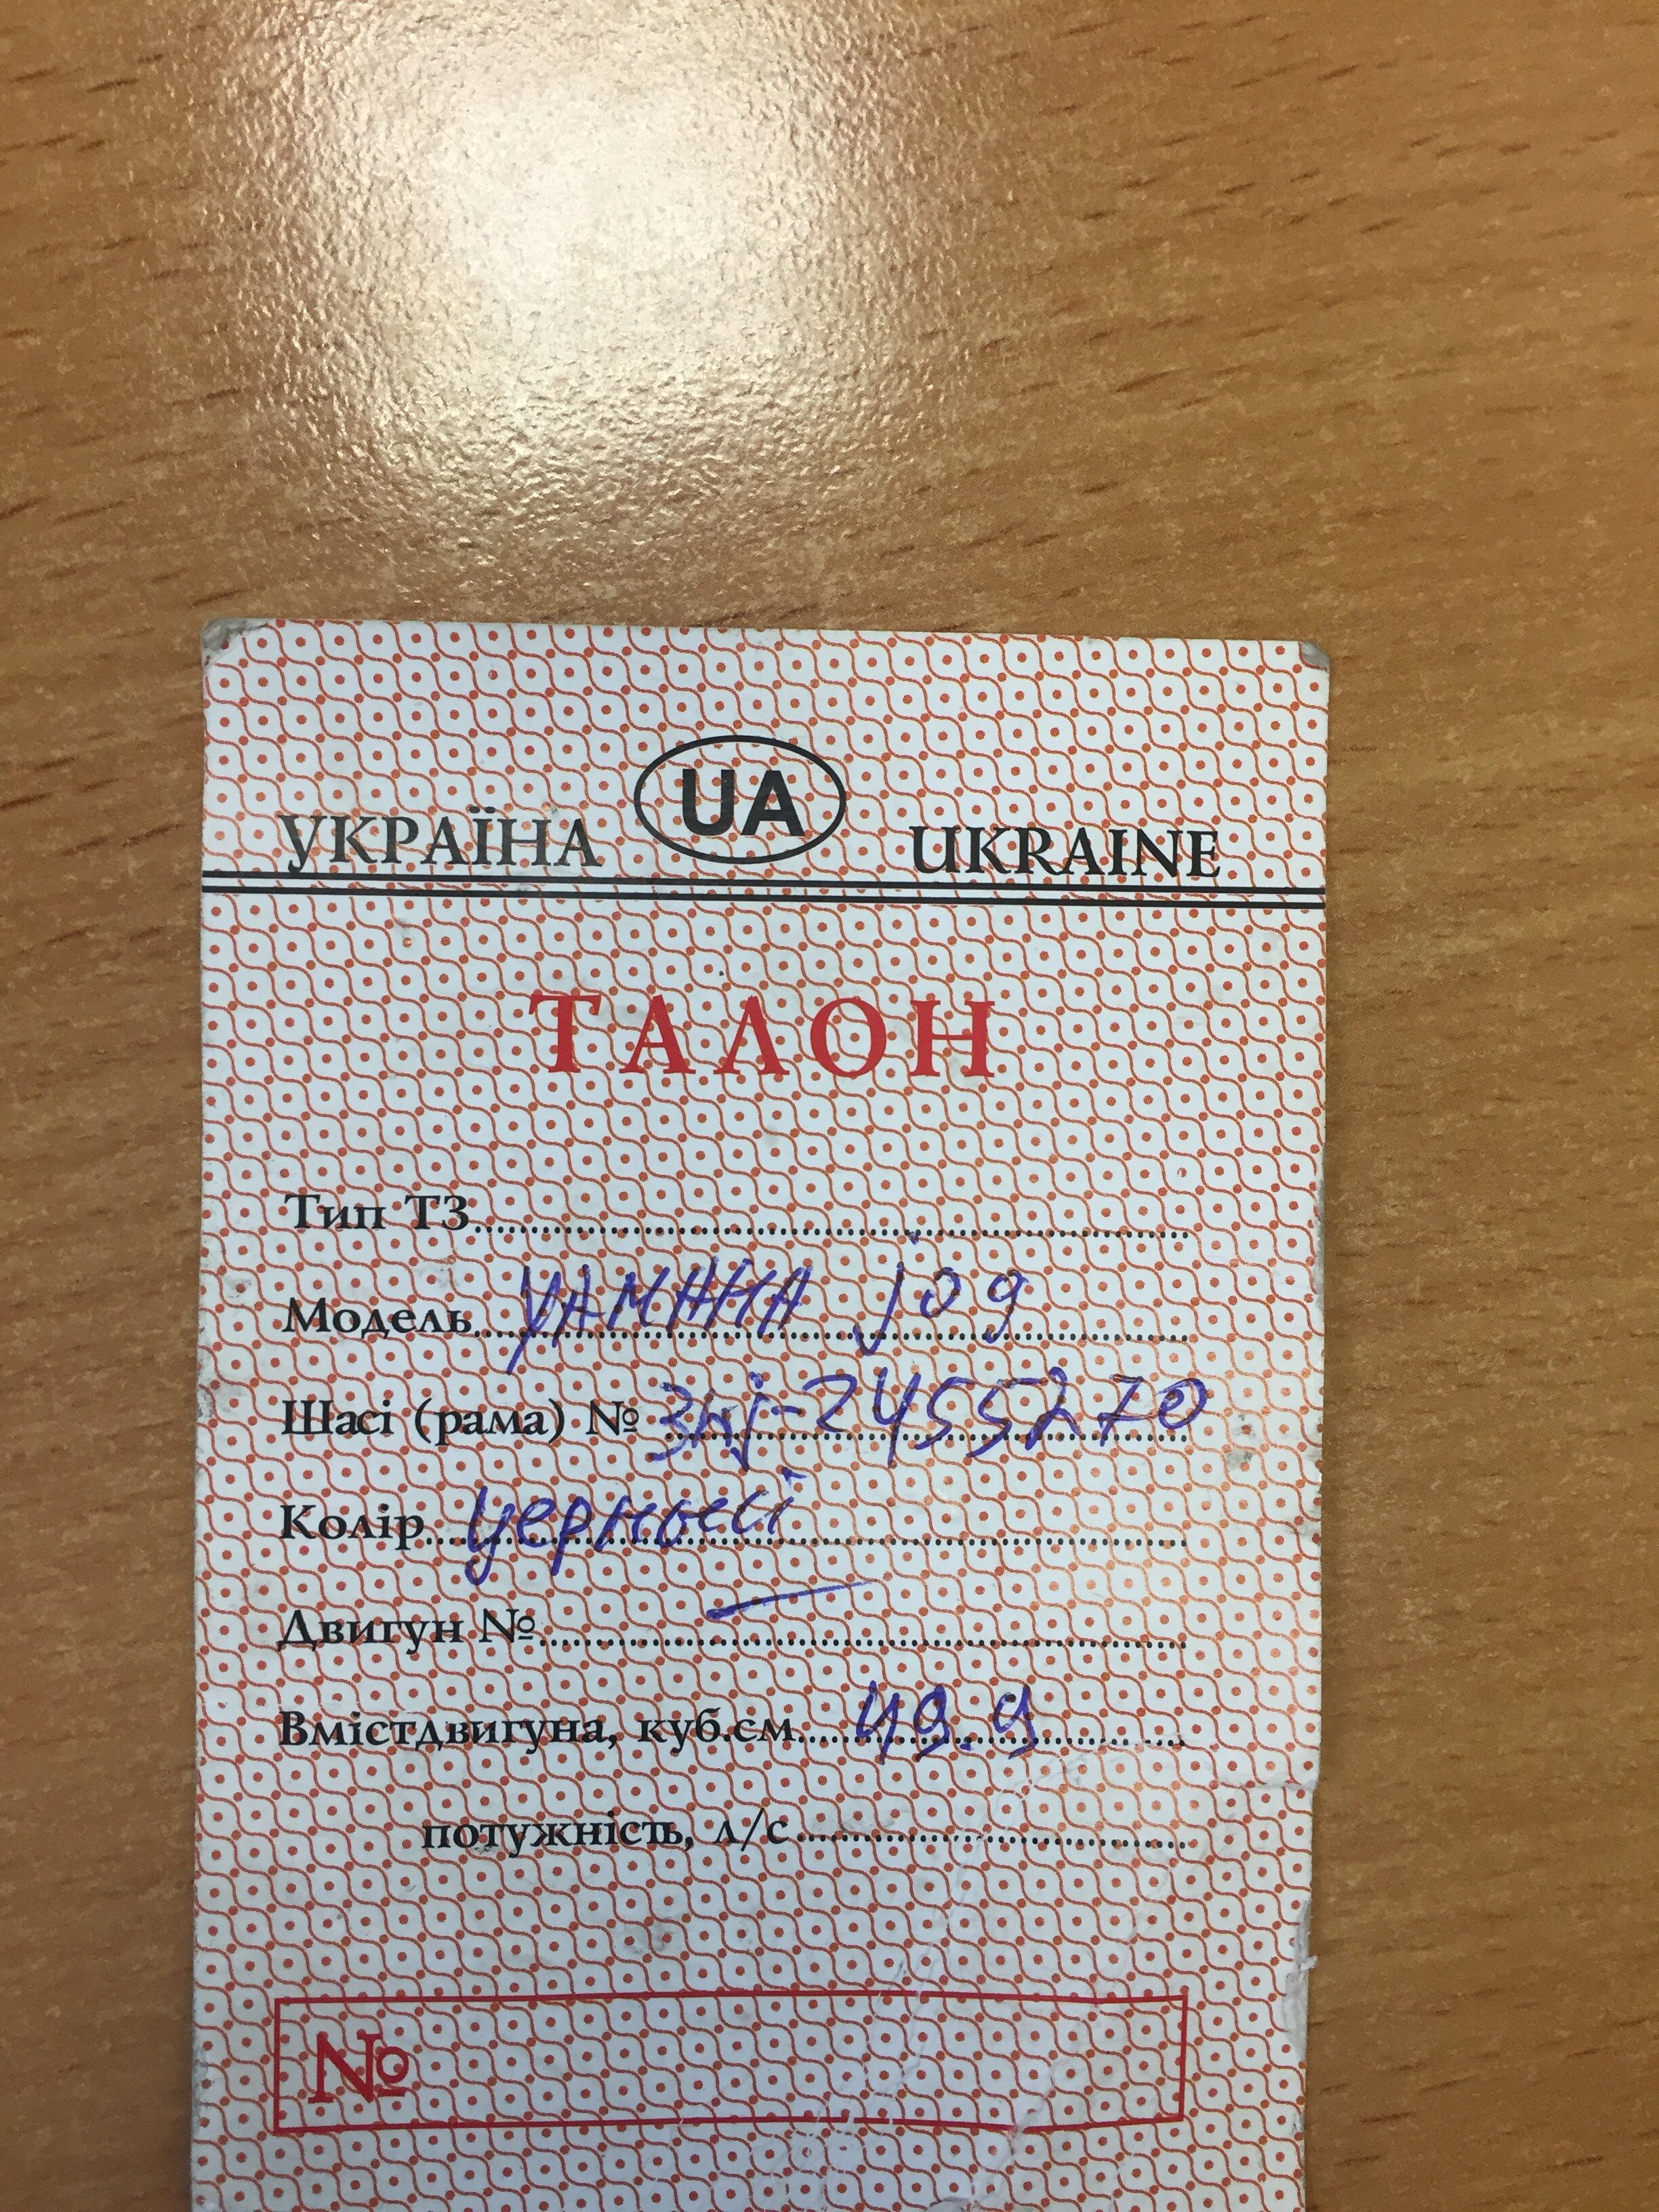 УКРАЇНА UA UKRAINE
ТАЛОН
Тип ТЗ
Модель УАМАНА jog
Шасі (рама) № 3kj-2455270
Колір
Двигун № —
Вмістдвигуна, куб.см 49.9
потужність, л/с
№